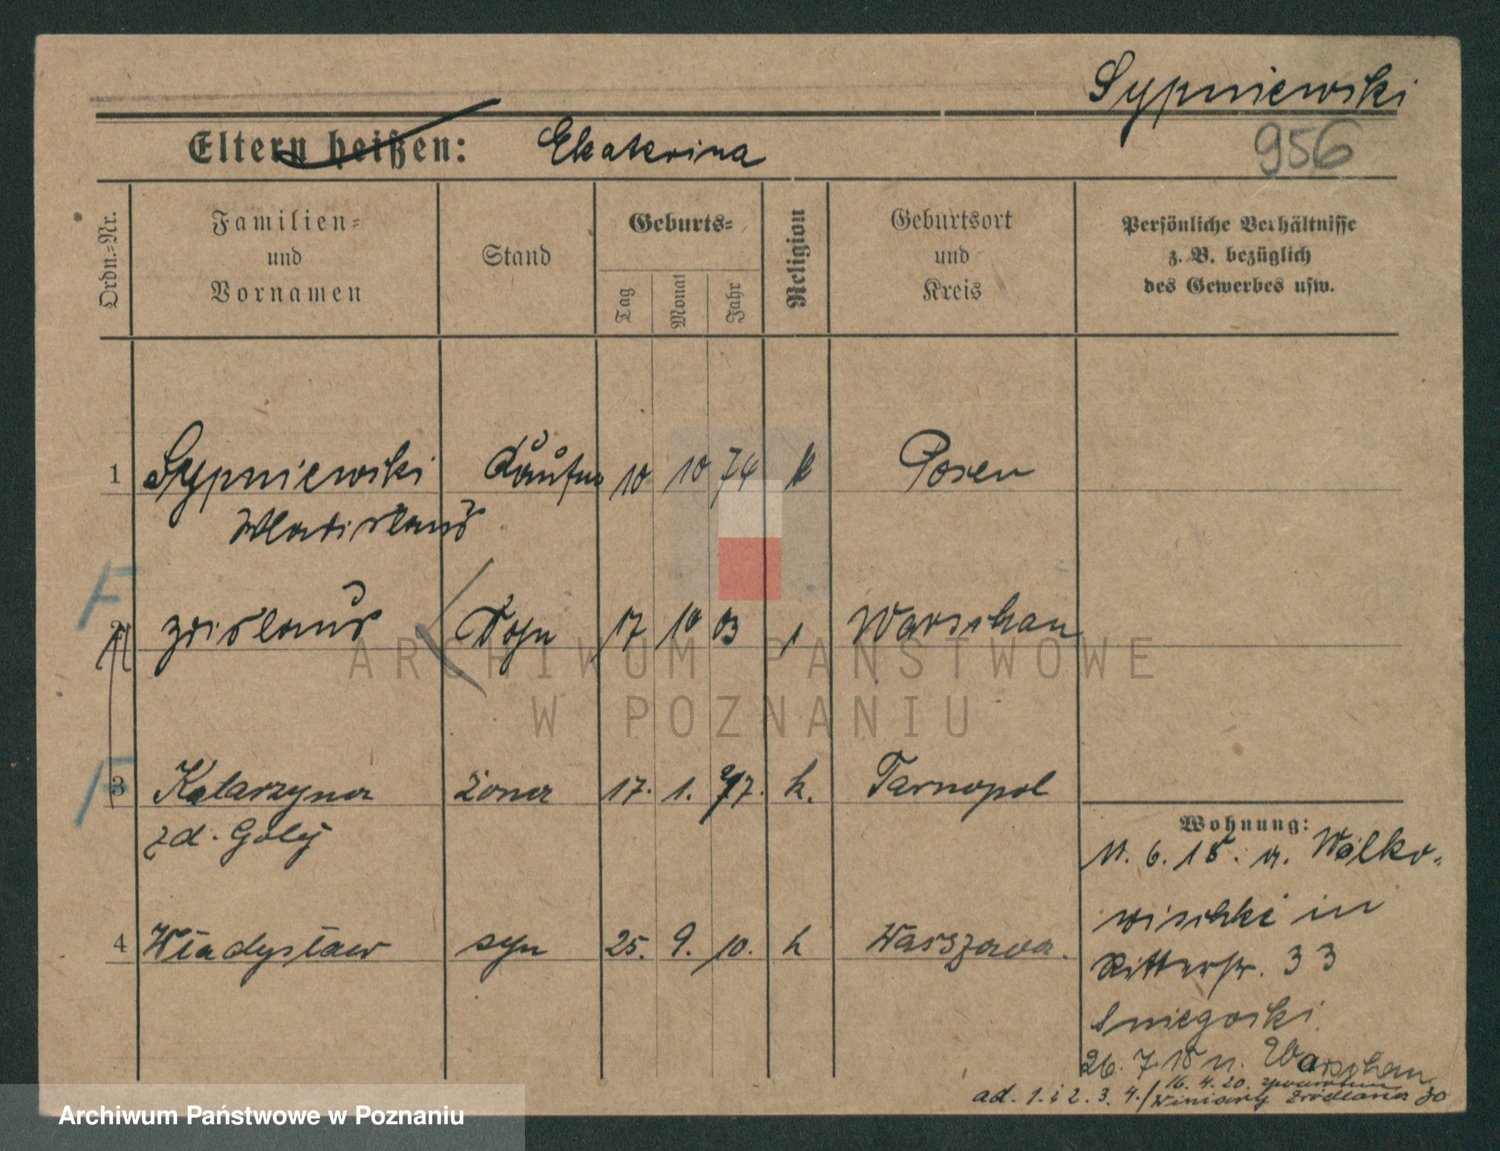 Sypniewski
956
Eltern heißen: Ekaterina
Ordn.-Nr.
Familien-
und
Vornamen
Stand
Geburts-
Tag
Monat
Jahr
Religion
Geburtsort
und
Kreis
Persönliche Verhältnisse
z. B. bezüglich
des Gewerbes usw.
1 Sypniewski Kaufm 10 10 74 k Posen
Wladislaus
F
2 Zdislaus Sohn 17 10 03 Warschau
F
3 Katarzyna żona 17. 1. 77. k. Tarnopol
zd. Goły
4 Władysław syn 25. 9. 10. k Warszawa.
Wohnung:
11. 6. 18. v. Wolko-
wischki in
Ritterstr. 33
Sniegoski
26. 7. 18 n. Warschau
ad. 1. i 2. 3. 4. / 16. 4. 20.
Winiary Źródlana 30
ARCHIWUM PAŃSTWOWE
W POZNANIU
Archiwum Państwowe w Poznaniu